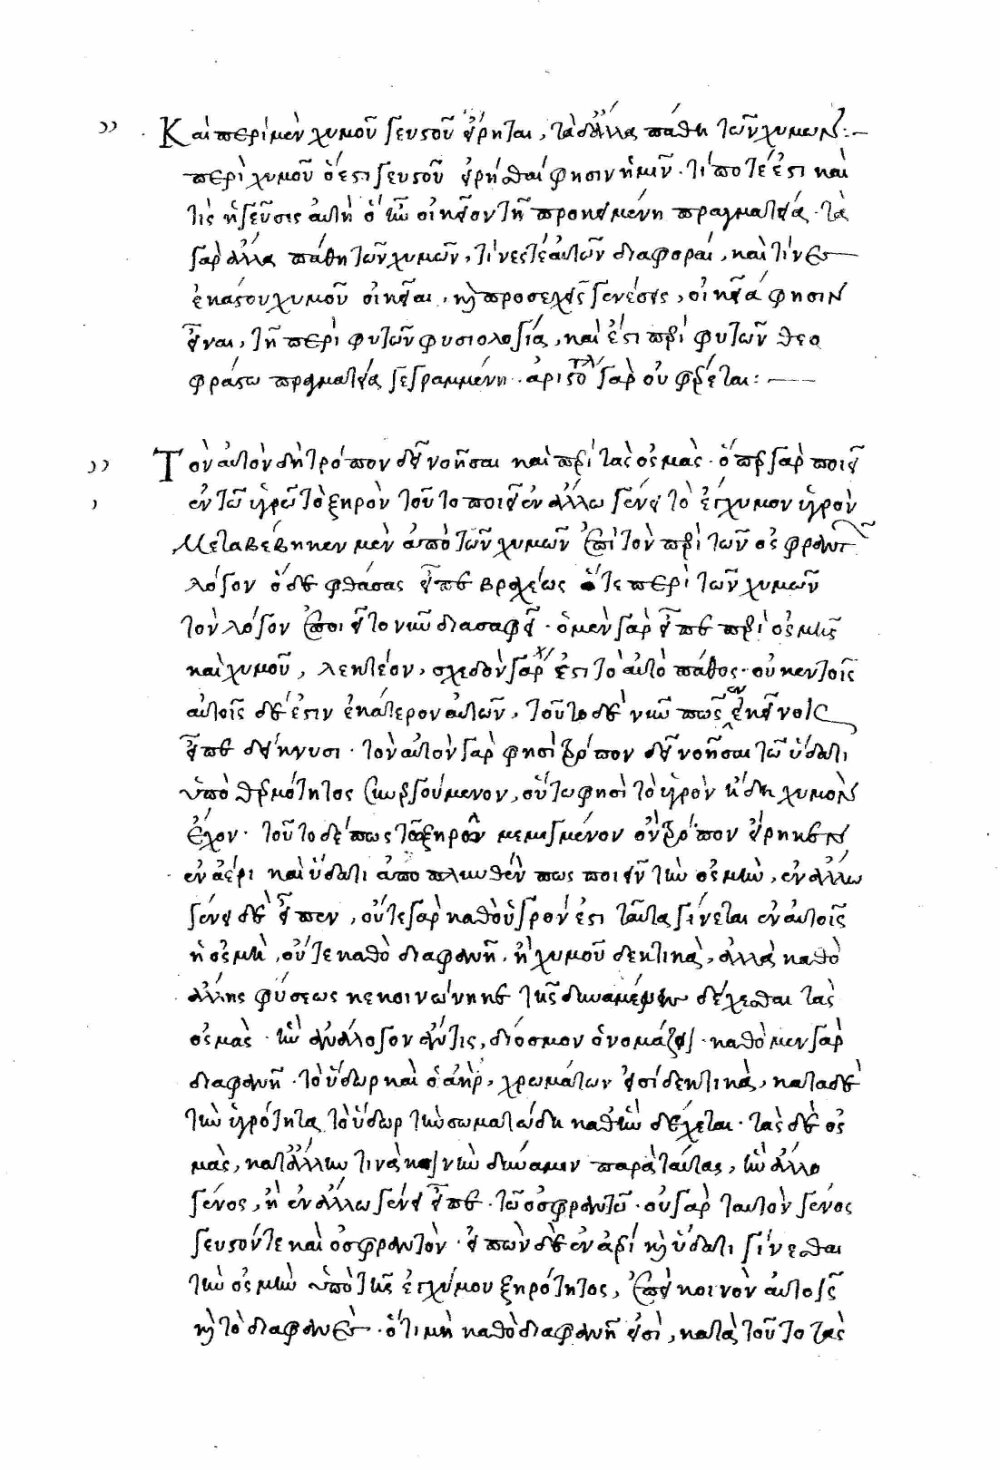 Καὶ περὶ μὲν χυμοῦ γευστοῦ εἴρηται, τὰ δ' ἄλλα πάθη τῶν χυμῶν:—
περὶ χυμοῦ ὅ ἐστι γευστοῦ εἰρῆσθαί φησιν ἡμῖν· τί ποτέ ἐστι καὶ
τίς ἡ γεῦσις αὐτὴ ὃ ἦν οἰκεῖον τῆ προκειμένη πραγματεία· τὰ
γὰρ ἄλλα πάθη τῶν χυμῶν, τίνες τε αὐτῶν διαφοραί, καὶ τίνες
ἑκάστου χυμοῦ οἰκεῖαι, καὶ προσεχεῖς γενέσεις, οἰκεῖά φησιν
εἶναι, τῆ περὶ φυτῶν φυσιολογία, καὶ ἔστι περὶ φυτῶν θεο
φράστω πραγματεία γεγραμμένη· ἀριστοτλ γὰρ οὐ φέρεται:—
Τὸν αὐτὸν δὴ τρόπον δεῖ νοῆσαι καὶ περὶ τὰς ὀσμάς· ὅπερ γὰρ ποιεῖ
ἐν τῶ ὑγρῶ τὸ ξηρὸν τοῦτο ποιεῖ ἐν ἄλλω γένει τὸ ἔγχυμον ὑγρὸν
Μεταβέβηκεν μὲν ἀπὸ τῶν χυμῶν ἐπὶ τὸν περὶ τῶν ὀσφραντ
λόγον ὃ δὲ φθάσας εἶπε βραχέως ὅτε περὶ τῶν χυμῶν
τὸν λόγον ἐποιεῖτο νῦν διασαφεῖ· ὁ μὲν γὰρ εἶπε περὶ ὀσμῆς
καὶ χυμοῦ, λεκτέον, σχεδὸν γάρ ἐστι τὸ αὐτὸ πάθος· οὐκ ἐν τοῖς
αὐτοῖς δέ ἐστιν ἑκάτερον αὐτῶν, τοῦτο δὲ νῦν πῶς ἐν ἐκείνοις
εἶπε δείκνυσι· τὸν αὐτὸν γὰρ φησὶ τρόπον δεῖ νοῆσαι τῶ ὕδατι
ὑπὸ θερμότητος ἐνεργούμενον, οὕτω φησὶ τὸ ὑγρὸν ἤδη χυμὸν
ἔχον· τοῦτο δέ πως τὸ ξηρὸν μεμιγμένον ὃν τρόπον εἴρηκεν
ἐν ἀέρι καὶ ὕδατι ἀποπλυνθέν πως ποιεῖν τὴν ὀσμὴν, ἐν ἄλλω
γένει δὲ εἶπεν, οὔτε γὰρ καθὸ ὑγρόν ἐστι ταῦτα γίνεται ἐν αὐτοῖς
ἡ ὀσμὴ, οὔτε καθὸ διαφανῆ, ἢ χυμοῦ δεκτικὰ, ἀλλὰ καθὸ
ἄλλης φύσεως κεκοινώνηκε τῆς δυναμένης δέχεσθαι τὰς
ὀσμάς· ἣν ἀνάλογον ἄν τις, δίοσμον ὀνομάζοι· καθὸ μὲν γὰρ
διαφανῆ· τὸ ὕδωρ καὶ ὁ ἀὴρ, χρωμάτων εἰσὶ δεκτικὰ, κατὰ δὲ
τὴν ὑγρότητα τὸ ὕδωρ τὴν σωματώδη καθ' ἣν δέχεται· τὰς δὲ ὀσ
μὰς, κατ' ἄλλην τινὰ καινὴν δύναμιν παρὰ ταύτας, ἣν ἄλλο
γένος, ἢ ἐν ἄλλω γένει εἶπε· τῶ ὀσφραντῶ· οὐ γὰρ ταυτὸν γένος
γευστόν τε καὶ ὀσφραντὸν· εἰπὼν δὲ ἐν ἀέρι καὶ ὕδατι γίνεσθαι
τὴν ὀσμὴν ὑπὸ τῆς ἐγχύμου ξηρότητος, ἐπεὶ κοινὸν αὐτοῖς
καὶ τὸ διαφανὲς· ὅτι μὴ καθὸ διαφανῆ εἰσὶ, κατὰ τοῦτο τὰς